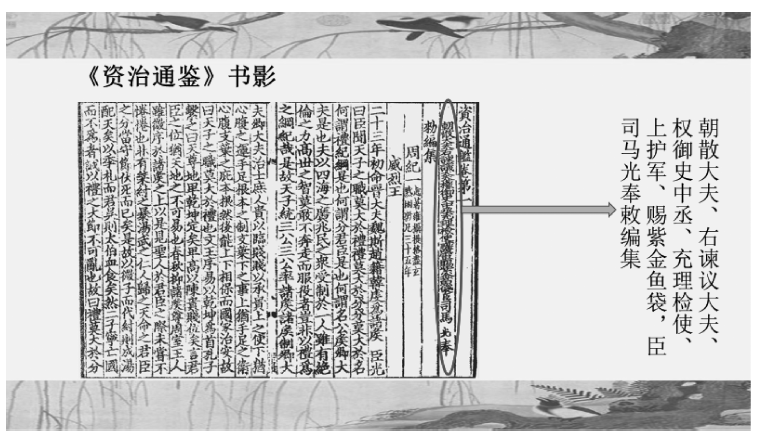 《资治通鉴》书影
朝散大夫、右谏议大夫、
权御史中丞、充理检使、
上护军、赐紫金鱼袋，臣
司马光奉敕编集
資治通鑑卷第一
朝散大夫右諫議大夫權御史中丞充理檢使上護軍賜紫金魚袋臣司馬 光奉
勑編集
周紀一
起著雍攝提格盡玄
黓困敦凡三十五年
威烈王
二十三年初命晉大夫魏斯趙籍韓虔爲諸侯 臣光
曰臣聞天子之職莫大於禮禮莫大於分分莫大於名
何謂禮紀綱是也何謂分君臣是也何謂名公侯卿大
夫是也夫以四海之廣兆民之衆受制於一人雖有絶
倫之力高世之智莫敢不奔走而服役者豈非以禮爲
之綱紀哉是故天子統三公三公率諸侯諸侯制卿大
夫卿大夫治士庶人貴以臨賤賤以承貴上之使下猶
心腹之運手足根本之制支葉下之事上猶手足之衛
心腹支葉之庇本根然後能上下相保而國家治安故
曰天子之職莫大於禮也文王序易以乾坤爲首孔子
繫之曰天尊地卑乾坤定矣卑高以陳貴賤位矣言君
臣之位猶天地之不可易也春秋抑諸侯尊周室王人
雖微序於諸侯之上以是見聖人於君臣之際未嘗不
惓惓也非有桀紂之暴湯武之仁人歸之天命之君臣
之分當守節伏死而已矣是故以微子而代紂則成湯
配天矣以季札而君吳則太伯血食矣然二子寧亡國
而不爲者誠以禮之大節不可亂也故曰禮莫大於分